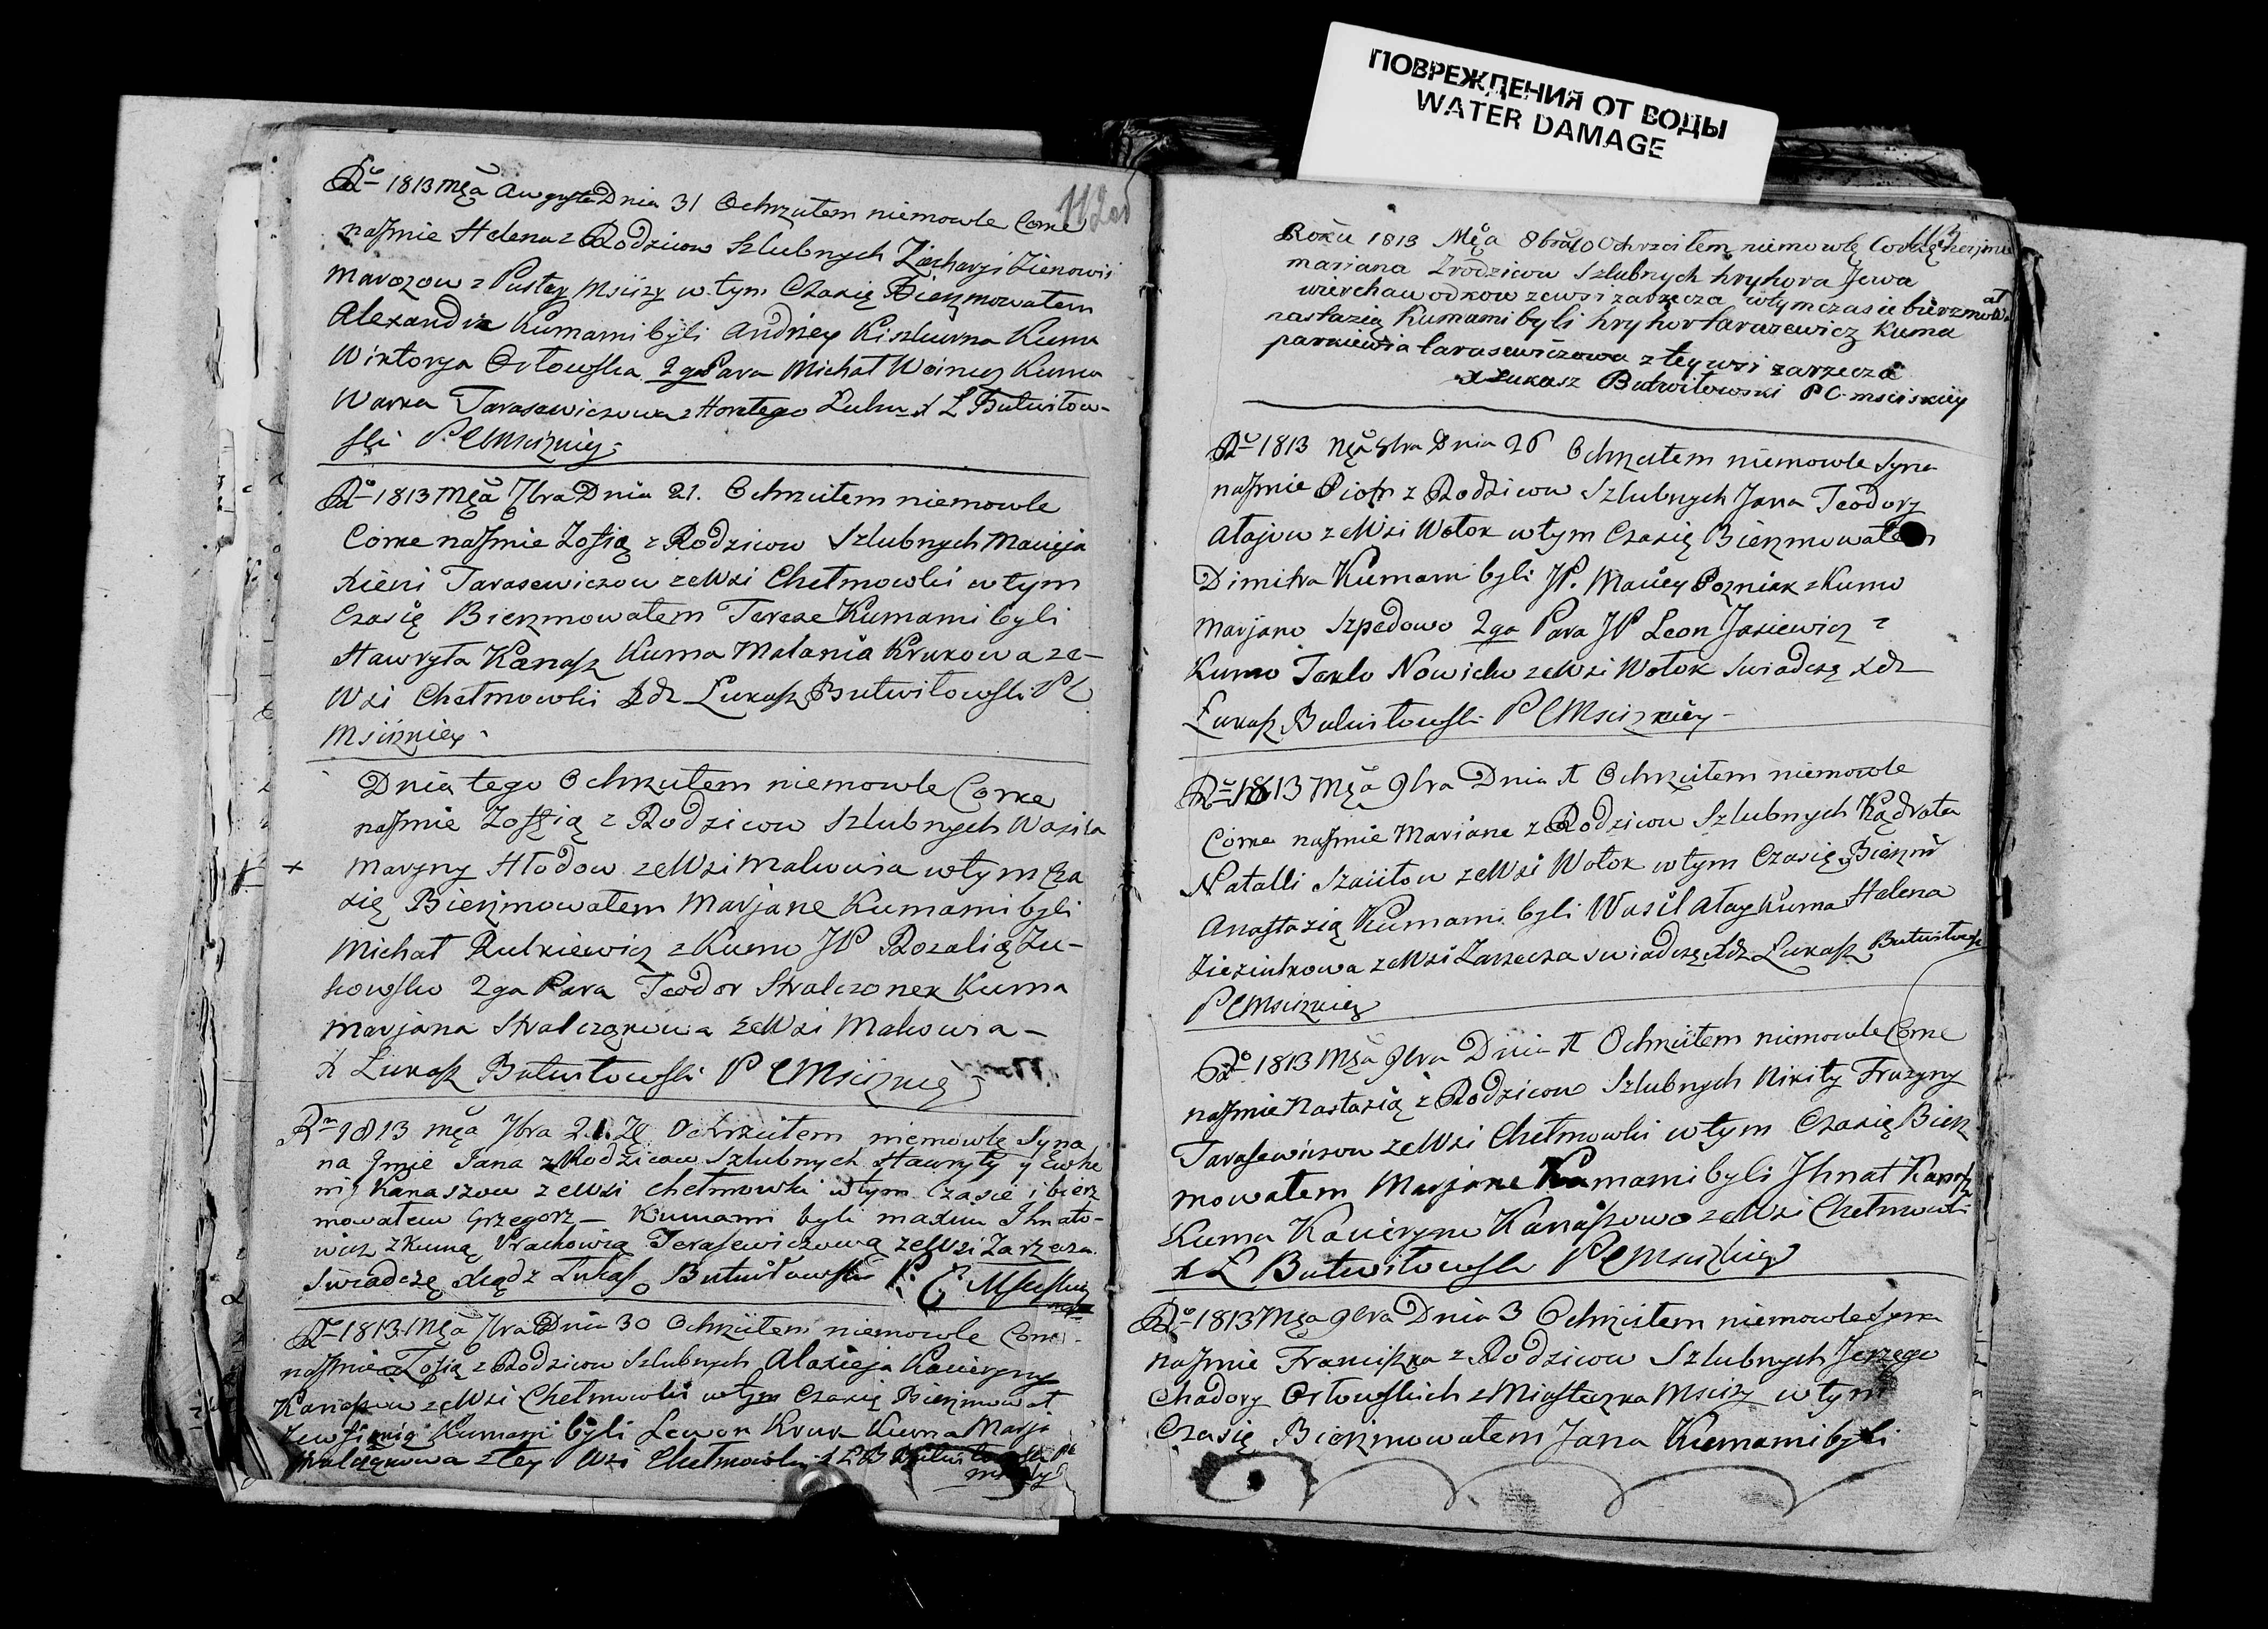 ПОВРЕЖДЕНИЯ ОТ ВОДЫ
WATER DAMAGE
112
Rº 1813 Mca Awgysta Dnia 31 Ochrzciłem niemowle Corke
na Jmie Helena z Rodzicow Szlubnych Zacharyi Zienowii
Marozow z Pustey Mscizy w tym Czasię Bierzmowałem
Alexandra Kumami byli Andrzey Kiszkurna Kuma
Wiktorya Orłowska 2ga Para Michał Woiniez Kuma
Warka Tarasewiczowa L Butwiłow-
ski P C Mscizkiey
Rº 1813 Mca 7bra Dnia 21. Ochrzciłem niemowle
Corke na Jmie Zofią z Rodzicow Szlubnych Macieja
Xieni Tarasewiczow ze Wsi Chełmowki w tym
Czasię Bierzmowałem Tereze Kumami byli
Hawryła Kanasz Kuma Małania Krukowa ze-
Wsi Chełmowki Xdz Łukasz Butwiłowski P C
Mscizkiey
Dnia tego Ochrzciłem niemowle Corke
na Jmie Zofią z Rodzicow Szlubnych Wasila
Maryny Hłodow ze Wsi w tym Cza
się Bierzmowałem Marjane Kumami byli
Michał Rutkiewicz z Kumo JP Rozalią Żu-
kowsko 2ga Para Teodor Stralczonek Kuma
Marjana Stralczonkowa ze Wsi Makowia
X Łukasz Butwiłowski P C Mscizkiey
Rº 1813 Mca 7bra 21. Ochrzciłem niemowle Syna
na Jmie Jana z Rodzicow Szlubnych Hawryły y Ewhe
nij Kanaszow ze Wsi Chełmowki w tym Czasie i bierz
mowałem Grzegorz – Kumami byli Maxim Ihnato-
wicz z Kumą Prachowią Terasewiczową ze Wsi Zarzecza
Swiadczę Xiądz Łukasz Butwiłowski P. C. Msciskiey
Rº 1813 Mca 7bra Dnia 30 Ochrzciłem niemowle Corke
na Jmie Zofią z Rodzicow Szlubnych Alaxieja Kacieryny
Kanaszow ze Wsi Chełmowki w tym Czasię Bierzmował
Kumami byli Lewon Kruk Kuma Marja
z tey Wsi Chełmowki
113
Roku 1813 Mca 8bra 10 Ochrzciłem niemowlę Corkę na jmie
mariana z rodzicow szlubnych hryhora Jewa
wierchawodkow ze wsi zarzecza w tym czasie bierzmował
nastazią Kumami byli hryhor tarasewicz kuma
parkiewia tarasewiczowa z tey wsi zarzecza
X Łukasz Butwiłowski P C msciskiey
Rº 1813 Mca 8bra Dnia 26 Ochrzciłem niemowle Syna
na Jmie Piotr z Rodzicow Szlubnych Jana Teodory
Ałajow ze Wsi Wołok w tym Czasię Bierzmowałem
Dimitra Kumami byli JP. Maciey Pozniak z Kumo
Marjano Szpedowo 2ga Para JP Leon Jasiewicz z
Kumo Teklo Nowicko ze Wsi Wołok Swiadczę Xdz
Łukasz Butwiłowski P C Mscizkiey
Rº 1813 Mca 9bra Dnia 1 Ochrzciłem niemowle
Corke na Jmie Mariane z Rodzicow Szlubnych Kądrata
Natalli Szaiitow ze Wsi Wołok w tym Czasię Bierzm
Anastazią Kumami byli Wasil Ałay Kuma Helena
Zieziulkowa ze Wsi Zarzecza swiadczę Xdz Łukasz Butwiłowski
P C Mscizkiey
Rº 1813 Mca 9bra Dnia 1 Ochrzciłem niemowle Corke
na Jmie Nastazią z Rodzicow Szlubnych Nikity Fruzyny
Tarasewiczow ze Wsi Chełmowki w tym Czasię Bierz
mowałem Marjane Kumami byli Jhnat Kanasz
Kuma Kacieryna Kanaszowo ze Wsi Chełmowki
X Ł Butwiłowski P C Mscizkiey
Rº 1813 Mca 9bra Dnia 3 Ochrzciłem niemowle Syna
na Jmie Franciszka z Rodzicow Szlubnych Jerzego
Chadory Orłowskich z Miasteczka Mscizy w tym
Czasię Bierzmowałem Jana Kumami byli